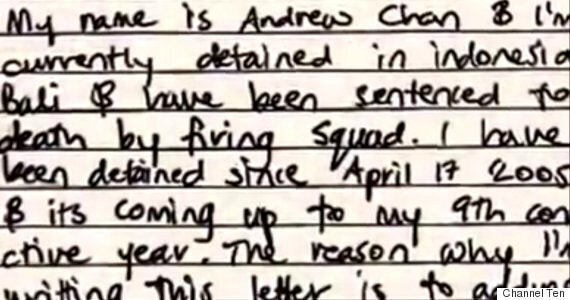 My name is Andrew Chan & I'm
currently detained in indonesia
Bali & have been sentenced to
death by firing squad. I have
been detained since April 17 2005
& its coming up to my 9th con
ctive year. The reason why I'm
writting this letter is to
Channel Ten